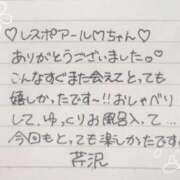 ♡レスポアール♡ちゃん♡
ありがとうございました。♡
こんなすぐまた会えてとっても
嬉しかったです〜!!おしゃべり
して、ゆっくりお風呂入って…
今回もとても楽しかったです
芹沢